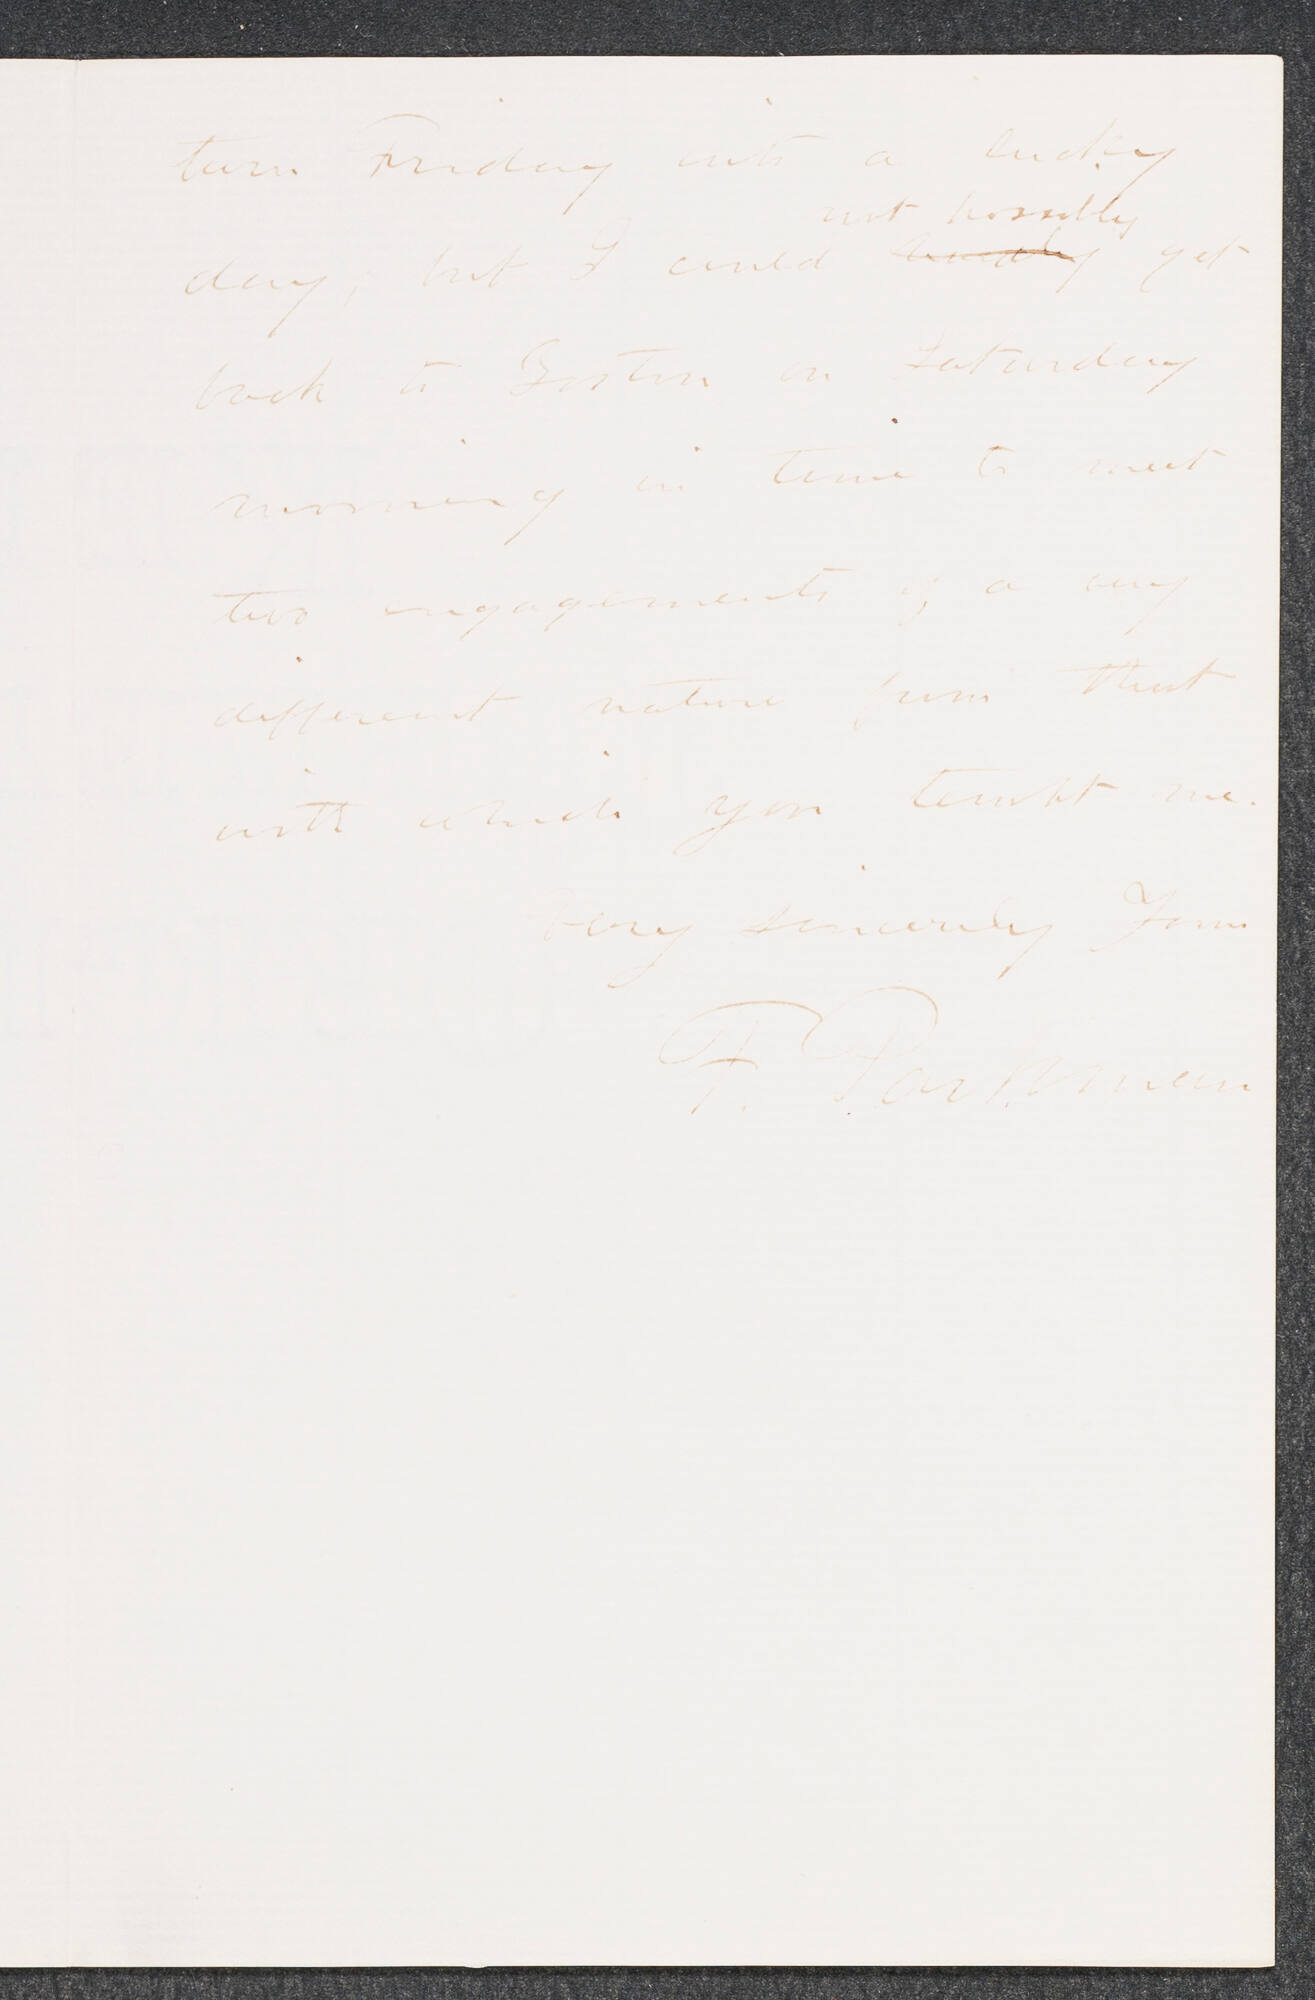 turn Friday into a lucky
not possibly
day, but I could hardly get
back to Boston on Saturday
morning in time to meet
two engagements of a very
different nature from that
with which you tempt me.
Very sincerely Yours
F. Parkman